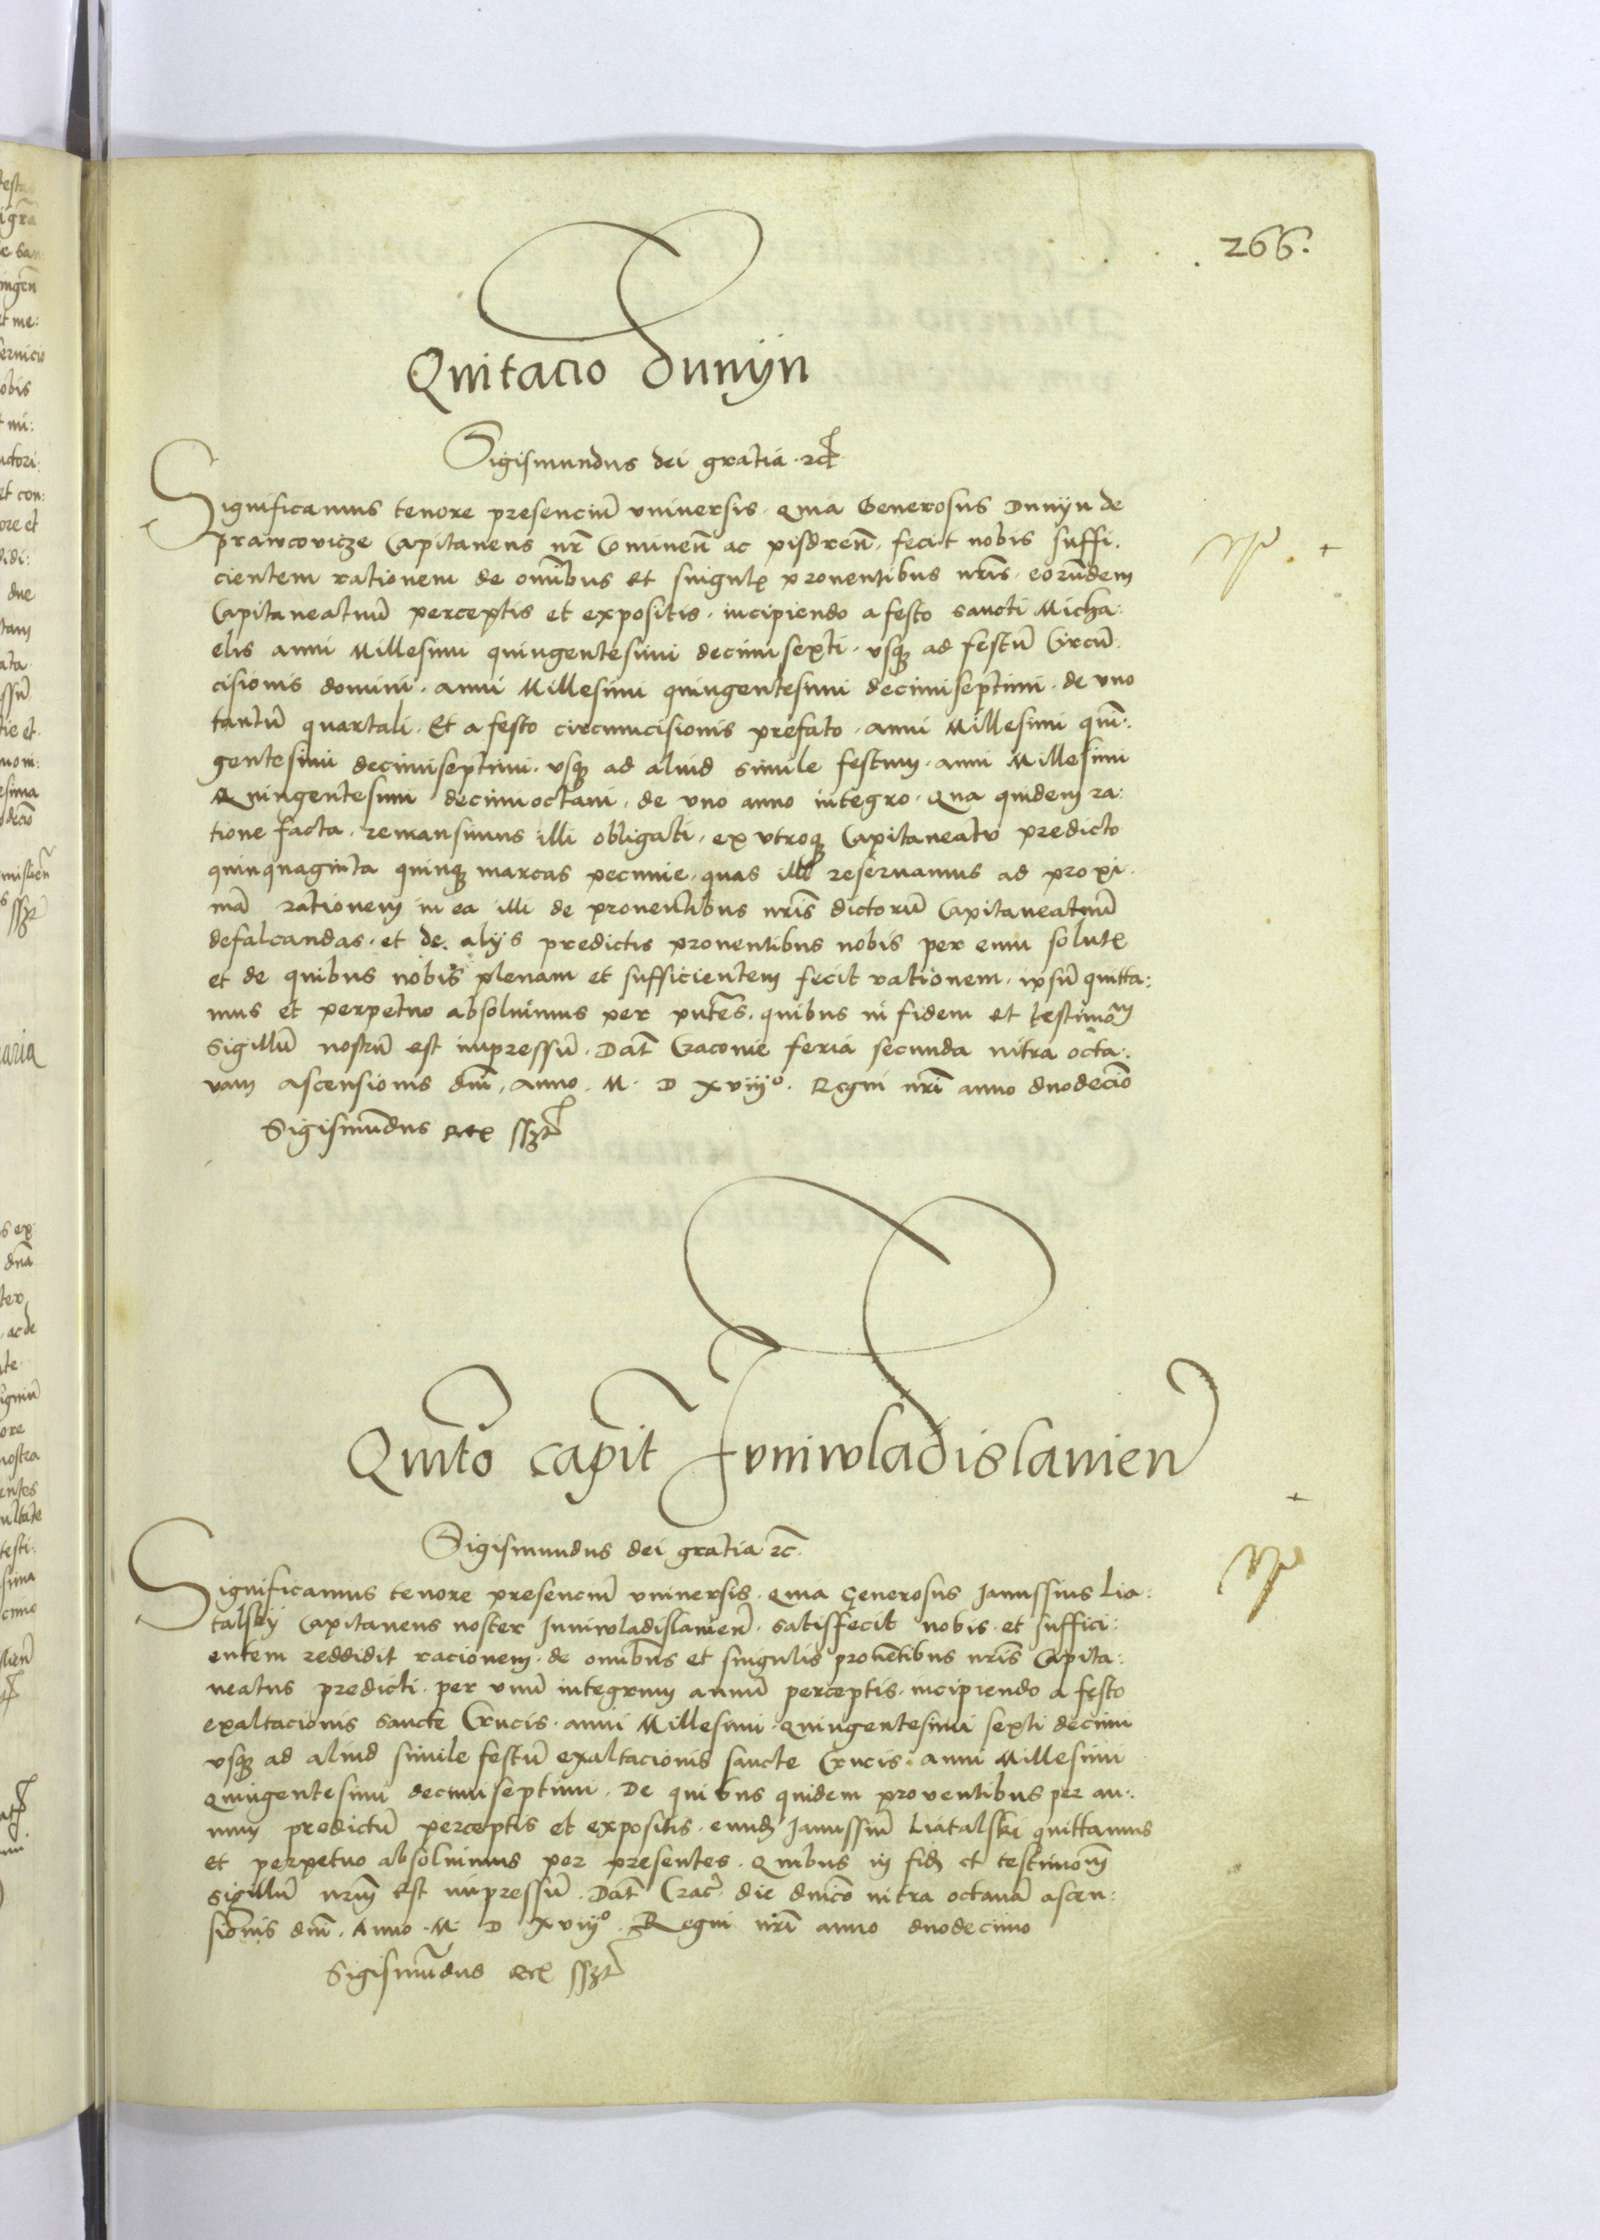 266.
Quitacio Dunijn
Sigismundus dei gratia ꝛc̃
Significamus tenore presenciũ vniuersis. quia Generosus Dunijn de
prawcovicze Capitaneus nr̃ Comineñ ac pisdreñ. fecit nobis suffi:
cientem rationem de om̃ibus et singulꝭ prouentibus nrĩs. eorũdem
Capitaneatuũ perceptis et expositis. incipiendo a festo sancti Micha:
elis anni Millesimi quingentesimi decimisexti. vsqꝫ ad festũ Circũ:
cisionis domini. anni Millesimi quingentesimi decimiseptimi. de vno
tantũ quartali. Et a festo circumcisionis prefato. anni Millesimi quĩ:
gentesimi decimiseptimi. vsqꝫ ad aliud simile festum. anni Millesimi
Quingentesimi decimioctaui. de vno anno integro. Qua quidem ra:
tione facta. remansimus illi obligati. ex vtroqꝫ Capitaneatu predicto
quinquaginta quinqꝫ marcas pecunie. quas illi reseruamus ad proxi:
mã rationem in ea illi de prouentibus nrĩs dictorũ Capitaneatuũ
defalcandas. et de alijs predictis prouentibus nobis per eum solutꝭ
et de quibus nobis plenam et sufficientem fecit rationem. ipsũ quitta:
mus et perpetuo absoluimus per pñtes. quibus in fidem et testimoᵐ
Sigillũ nostrũ est impressũ. Dat̃ Cracouie feria secunda infra octa:
vam ascensionis dñi. Anno. M. D xviijº. Regni nrĩ anno duodecĩo
Sigismũdus Rex ssꝫt
Quitõ capit̃ Juniwladislauień
Sigismundus dei gratia ꝛc̃.
Significamus tenore presenciũ vniuersis. quia Generosus Janussius Lia:
talskij Capitaneus noster Juniwladislauieñ. satisfecit nobis. et suffici:
entem reddidit racionem. de omnibus et singulis prouẽtibus nrĩs Capita:
neatus predicti. per vnũ integrum annũ perceptis. incipiendo a festo
exaltacionis sancte Crucis. anni Millesimi. quingentesimi sexti decimi
vsqꝫ ad aliud simile festũ exaltacionis sancte Crucis. anni Millesimi
quingentesimi decimiseptimi. De quibus quidem prouentibus per an:
num predictũ perceptis et expositis. eundꝫ Janussiũ Liatalski quittamus
et perpetuo absoluimus per presentes. Quibus in fidꝫ et testimoᵐ
sigillũ nrm̃ est impressũ. Dat̃ Crac̃. die dnĩco infra octauã ascen:
sionis dñi. Anno. M. D xviijº. Regni nrĩ anno duodecimo
Sigismũdus Rex ssꝫt